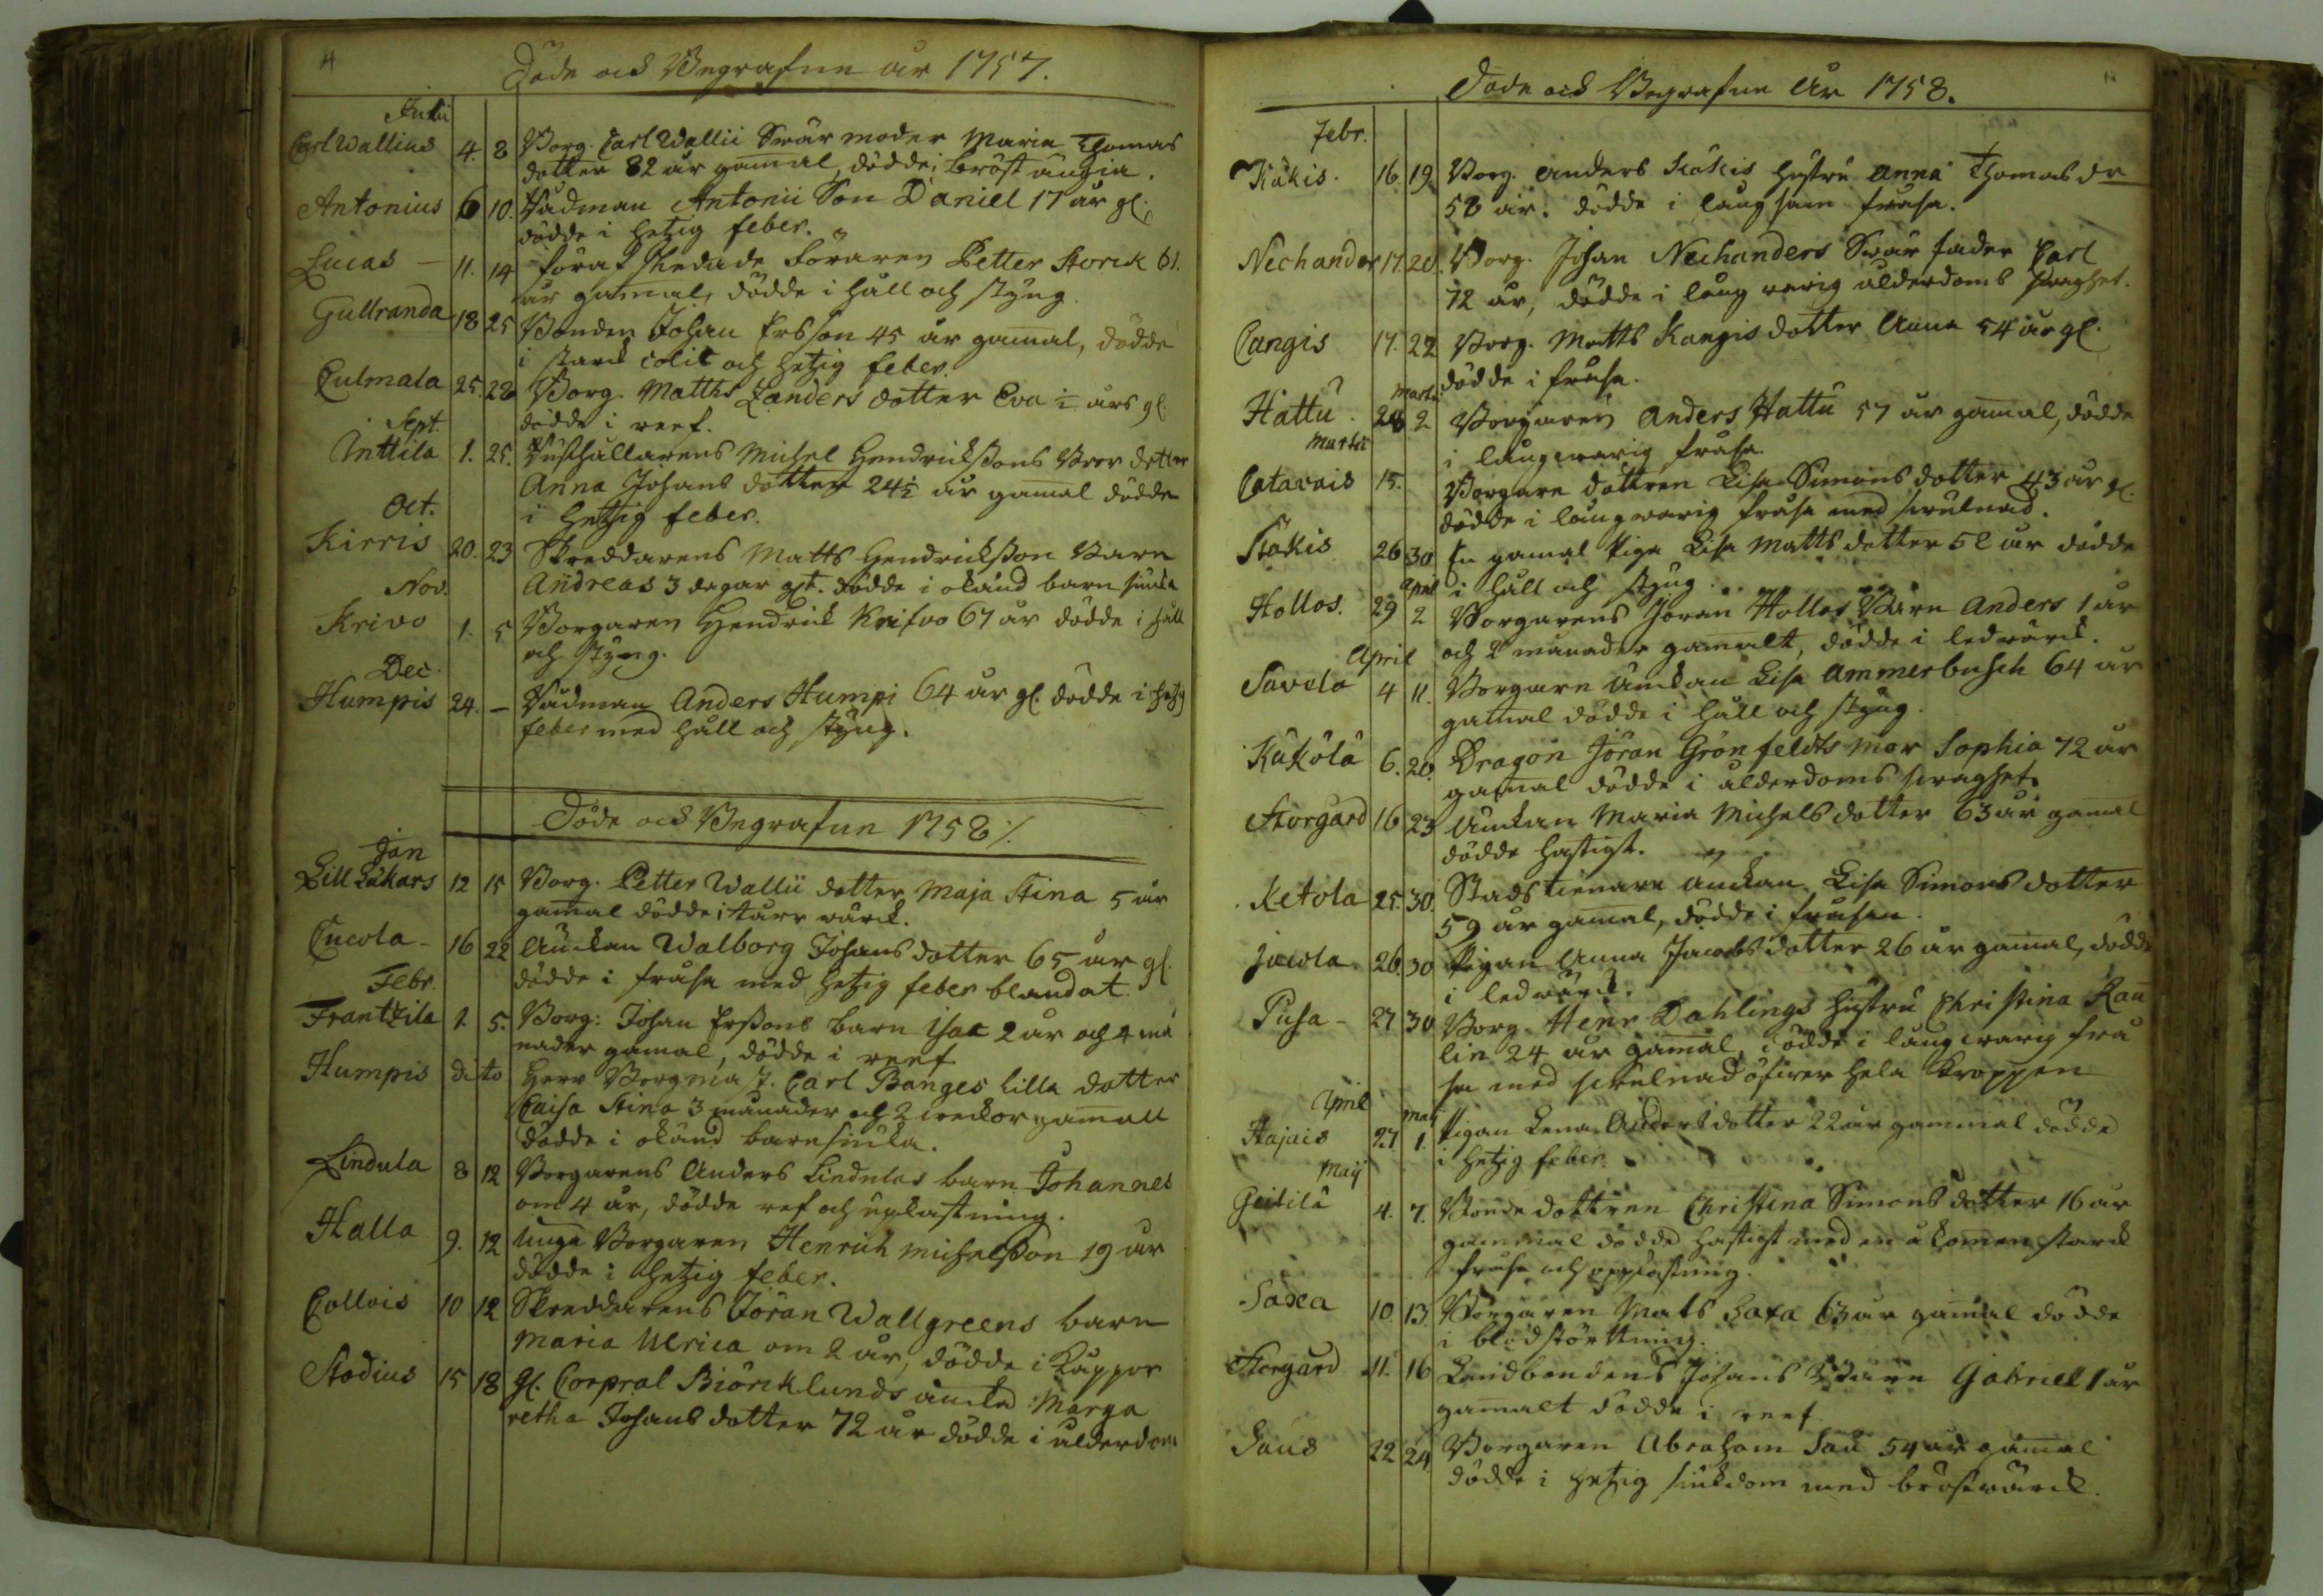 4
Döde och Begrafne år 1757.
Julii
Carl Wallius 4. 8 Borg. Carl Wallii Swär moder Maria Thomas
dotter 82 år gamal, dödde i bröst
Antonius 6 10. Rådman Antonii Son Daniel 17 år gl.
dödde i hetzig feber.
Lucas - 11. 14 förafskedade Föraren Petter Storck 61.
år gamal, dödde i håll och styng.
Gullranda 18 25 Bonden Johan Ersson 45 år gamal, dödde
i starck colik och hetzig feber.
Culmala 25. 28 Borg. Matths Landers dotter Eva ½ års gl.
dödde i reef.
Sept.
Anttila 1. 25. Rusthållarens Michel Hendrickssons Bror dotter
Anna Johans dotter 24½ år gamal dödde
i hetzig feber.
Oct.
Kirris 20. 23 Skreddarens Matts Hendricksson Barn
Andreas 3 dagar glt. dödde i okänd barn siuka
Nov.
Krivo 1. 5 Borgaren Hendrick Krifvo 67 år dödde i håll
och styng.
Dec.
Humpis 24. - Rådman Anders Humpi 64 år gl. dödde i hetzig
feber med håll och styng.
Döde och Begrafne 1758 ⁒
Jan
Lill Lukars 12 15 Borg. Petter Wallii dotter Maja Stina 5 år
gamal dödde i
Cucola - 16 22 Änckan Walborg Johans dotter 65 år gl.
dödde i frusa med hetzig feber blandat.
Febr.
Frantzila 1. 5. Borg: Johan Erssons barn Isac 2 år och 4 må
nader gamal, dödde i reef
Humpis dito Herr Borgmäst. Carl Banges lilla dotter
Caisa Stina 3 månader och 2 weckor gamall
dödde i okänd barnsiuka.
Lindula 8 12 Borgarens Anders Lindulas barn Johannes
om 4 år, dödde ref och uplastning.
Halla 9. 12 Unga Borgaren Henrich Michelsson 19 år
dödde i hetzig feber.
Collois 10 12 Skreddarens Jöran Wallgreens barn
Maria Ulrica om 2 år, dödde i Kåppor
Stodius 15 18 gl. Corpral Biörcklunds äncka Marga
retha Johans dotter 72 år dödde i ålderdom
Döde och Begrafne År 1758.
Febr.
Kåkis. 16. 19. Borg. Anders Kåkis hustru Anna Thomas dr
58 år. dödde i långsam frusa.
Nechander 17. 20. Borg. Johan Nechanders Swär fader Carl
72 år, dödde i lång warig ålderdoms swaghet.
Cangis 17. 22 Borg. Matts Kangis dotter Anna 54 år gl.
dödde i frusa.
Marti
Hattu. 28 2 Borgaren Anders Hattu 57 år gamal, dödde
i långwarig frusa.
Martii
Catarais 15. Borgare dottren Lisa Simons dotter 43 år gl.
dödde i långwarig frusa med swulnad.
Kåkis 26 30 En gamal Piga Lisa Matts dotter 52 år dödde
i håll och styng.
April
Hollos. 29 2 Borgarens Jöran Hollos Barn Anders 1 år
och 2 månader gamalt, dödde i ledwärck.
April
Savela 4 11. Borgare änckan Lisa Ammerbusch 64 år
gamal dödde i håll och styng.
Kukola 6. 20. Dragon Jöran Grönfeldts mor Sophia 72 år
gamal dödde i ålderdoms swaghet.
Storgård 16 23 Änckan Maria Michels dotter 63 år gamal
dödde hastigt.
Ketola 25. 30. Stadstienare änckan Lisa Simons dotter
59 år gamal, dödde i frusan.
Jacola 26. 30 Pigan Anna Jacobs dotter 26 år gamal, dödde
i ledwärck.
Pusa - 27 30 Borg. Henr Dahlings hustru Christina Rau
lin 24 år gamal, dödde i långwarig fru
sa med swulnad öfwer hela Kroppen
April
May
Hajais 27. 1. Pigan Lena Anders dotter 22 år gammal dödde
i hetzig feber.
Maij
Geitila 4. 7. Bonde dottren Christina Simons dotter 16 år
gammal dödde hastigt med en åkomen starck
frusa och uppkastning.
Saxa 10. 13. Borgaren Mats Saxa 63 år gamal dödde
i blodstörttning.
Storgård 11. 16 Landbondens Johans Barn Gabriell 1 år
gamalt dödde i reef.
Saus 22 24. Borgaren Abraham Sau 54 år gamal
dödde i hetzig siukdom med bröstwärck.